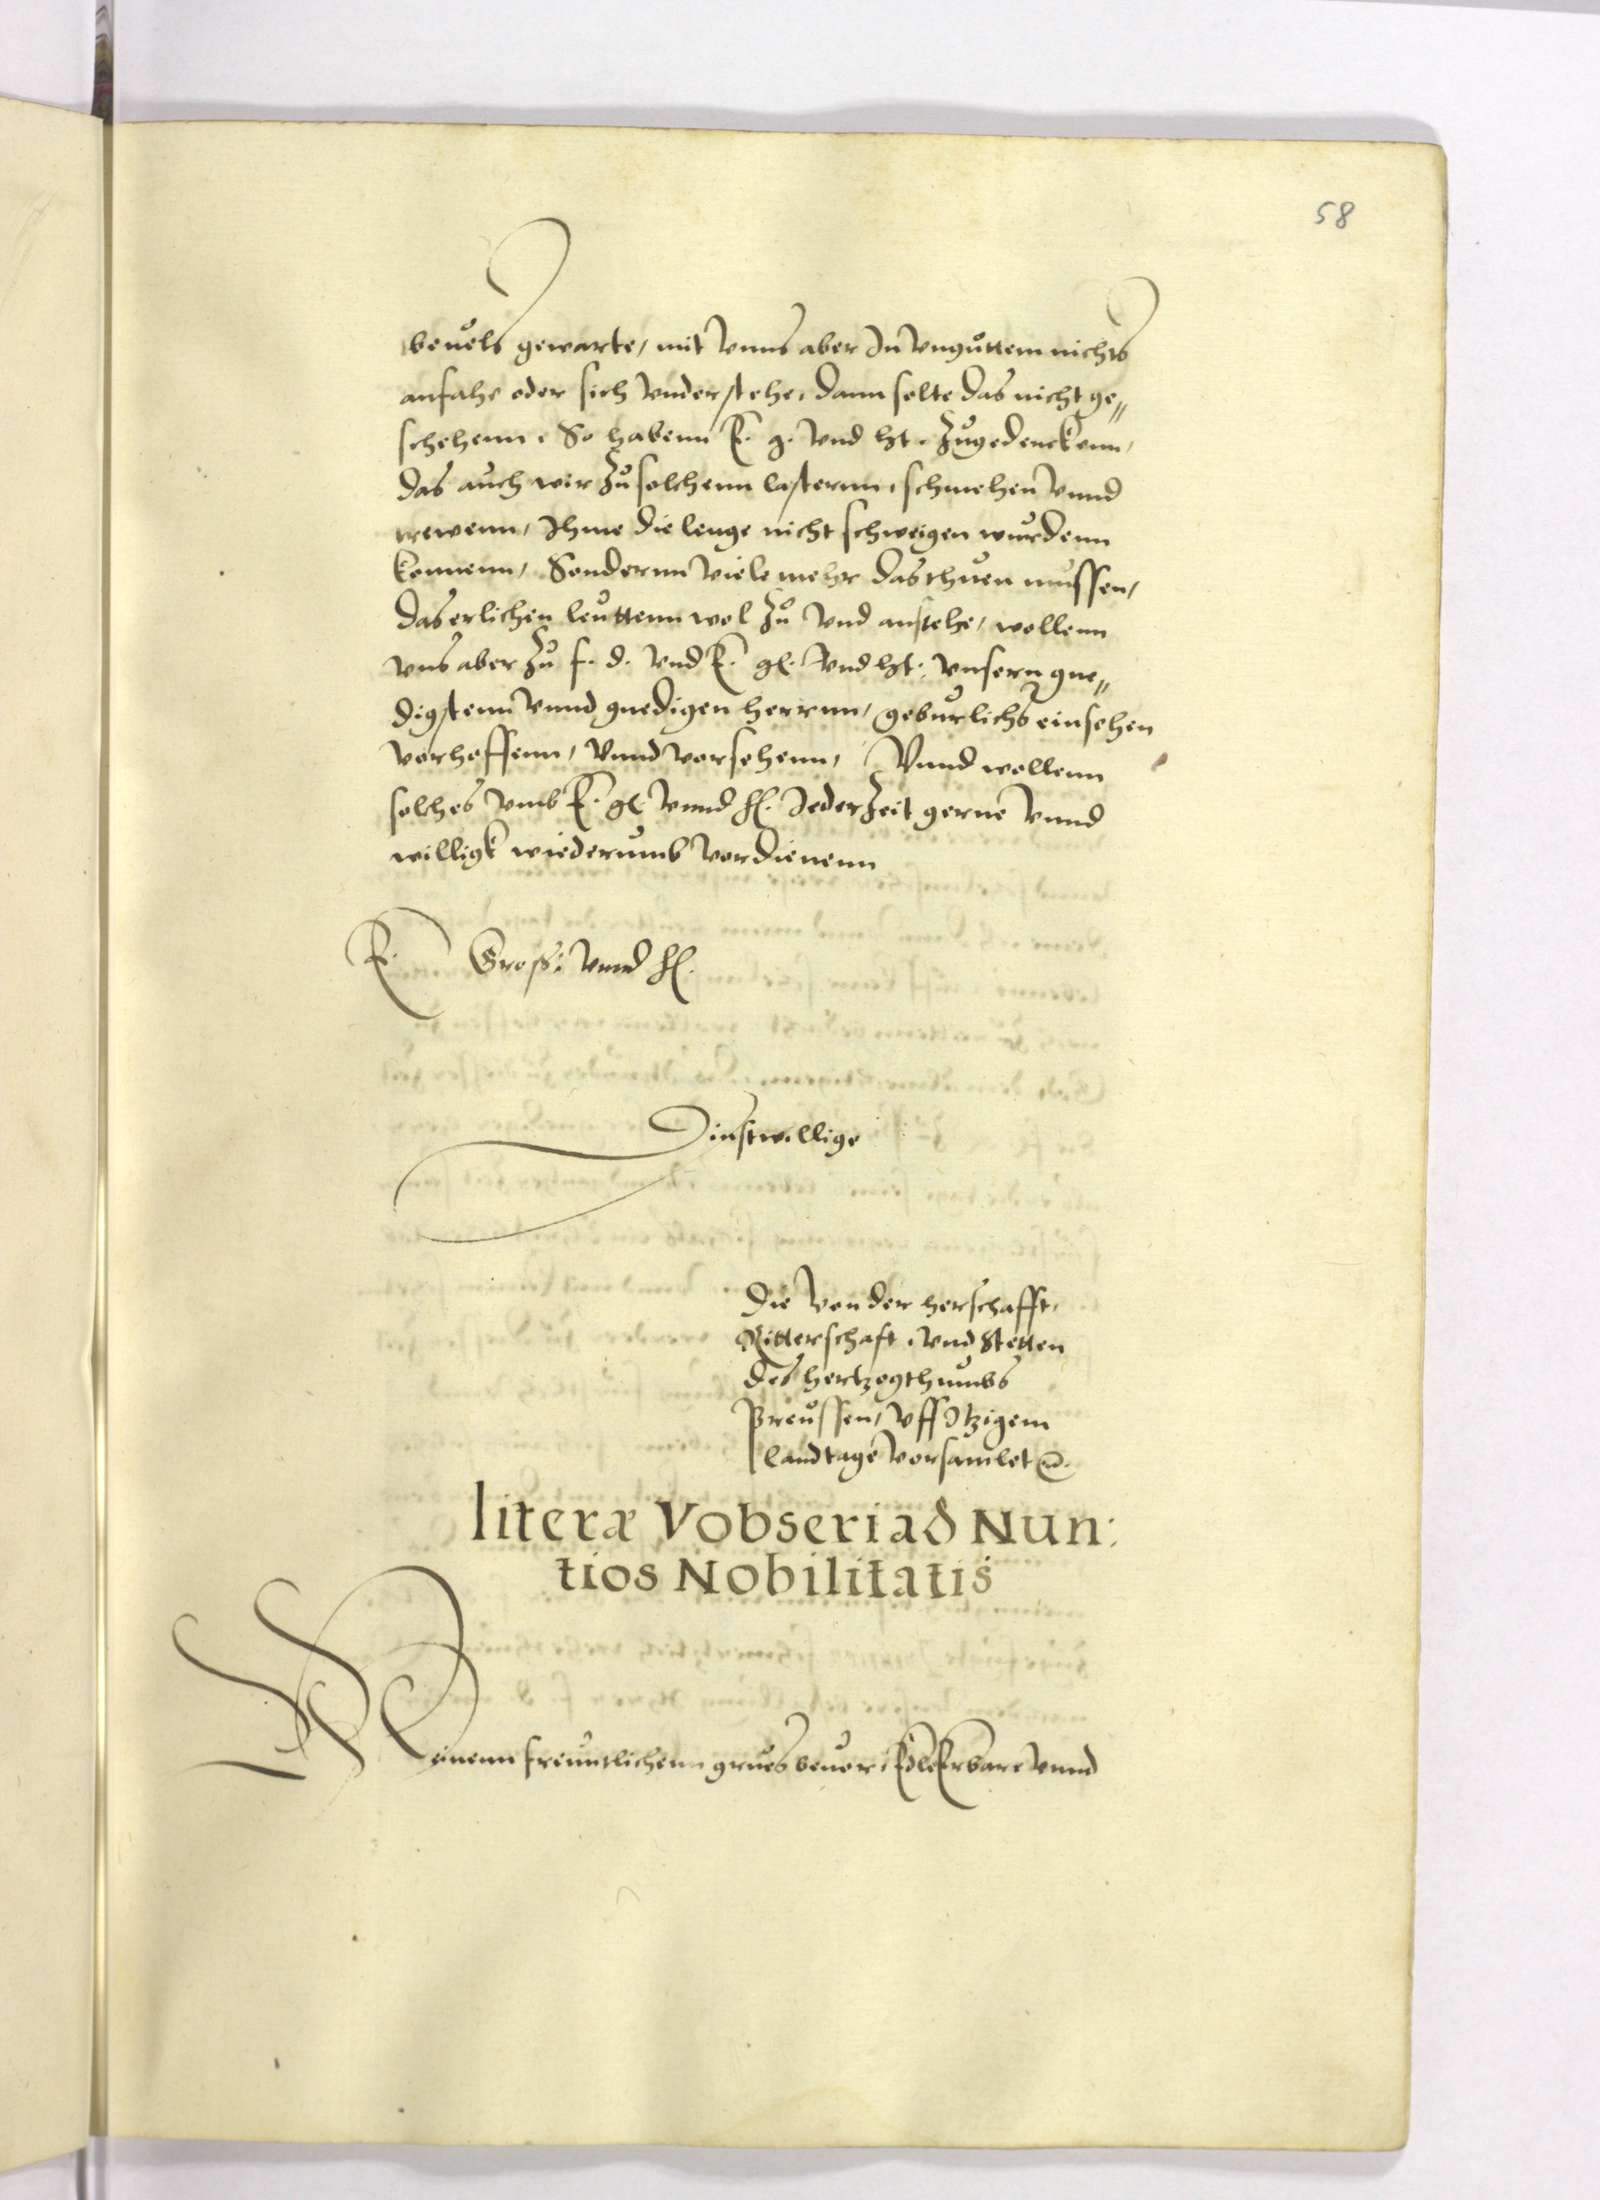 58
beuels gewarte, mit Vnns aber In Vnguttem nichts
anfahe oder sich Vnderstehe, dann solte das nicht ge„
schehenn. So habenn E. g. Vnd ht. zugedenckenn,
das auch wir zu solchenn lasternn, schmehen Vnnd
Ihme die lenge nicht schweigen wurdenn
konnenn, Sondernn Viele mehr das thuen mussen,
das erlichen leuttenn wol zu Vnd anstehe, wollenn
Vns aber zu f. d. Vnd E. gl. Vnd ht. Vnsern gne„
digstenn Vnnd gnedigen herrnn, geburlichs einsehen
Verhoffenn, Vnnd Vorsehenn, Vnnd wollenn
solches Vmb E. gl. Vnnd hl. Jederzeit gerne Vnnd
willigk wiederumb Vordienenn
E. Groß: Vnnd hl.
Dinstwillige
Die Von der herschafft,
Ritterschaft, Vnd Stetten
des hertzogthumbs
Preussen, Vff Itzigem
landtage Vorsamlet
literæ Vobseri ad Nun:
tios Nobilitatis
Meinenn freuntlichenn grues beuor, Edle Erbare Vnnd